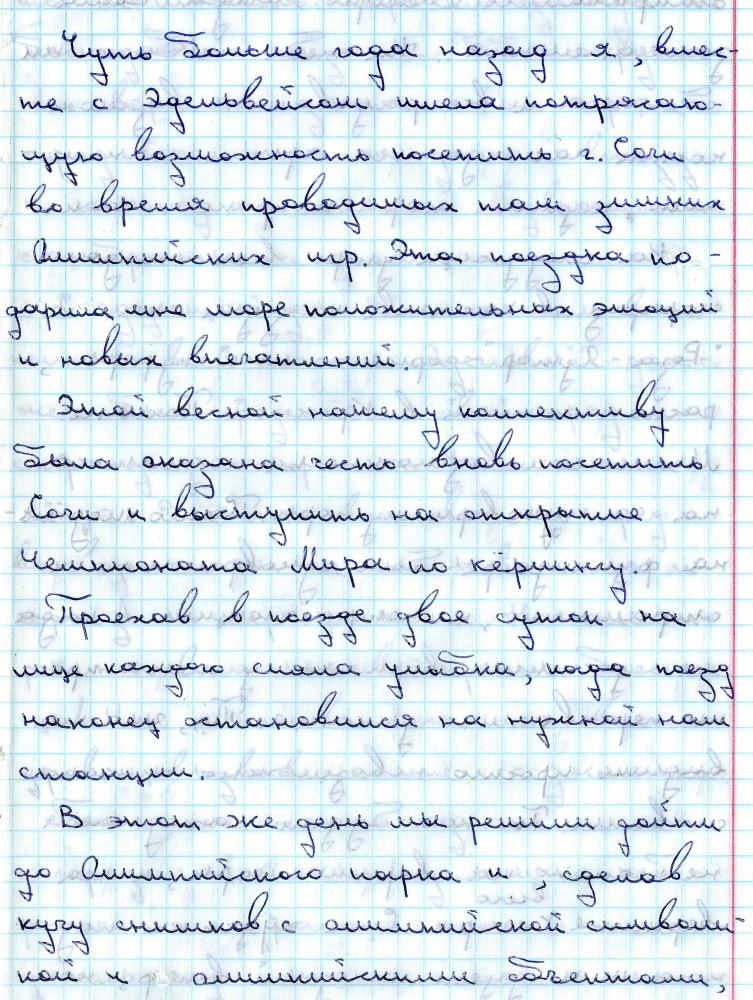 Чуть больше года назад я, вмес-
те с Эдельвейсом имела потрясаю-
щую возможность посетить г. Сочи
во время проводимых там зимних
Олимпийских игр. Эта поездка по-
дарила мне море положительных эмоций
и новых впечатлений.
Этой весной нашему коллективу
была оказана честь вновь посетить
Сочи и выступить на открытие
Чемпионата Мира по кёрлингу.
Проехав в поезде двое суток на
лице каждого сияла улыбка, когда поезд
наконец остановился на нужной нам
станции.
В этот же день мы решили дойти
до Олимпийского парка и, сделав
кучу снимков с олимпийской символи-
кой и олимпийскими объектами,